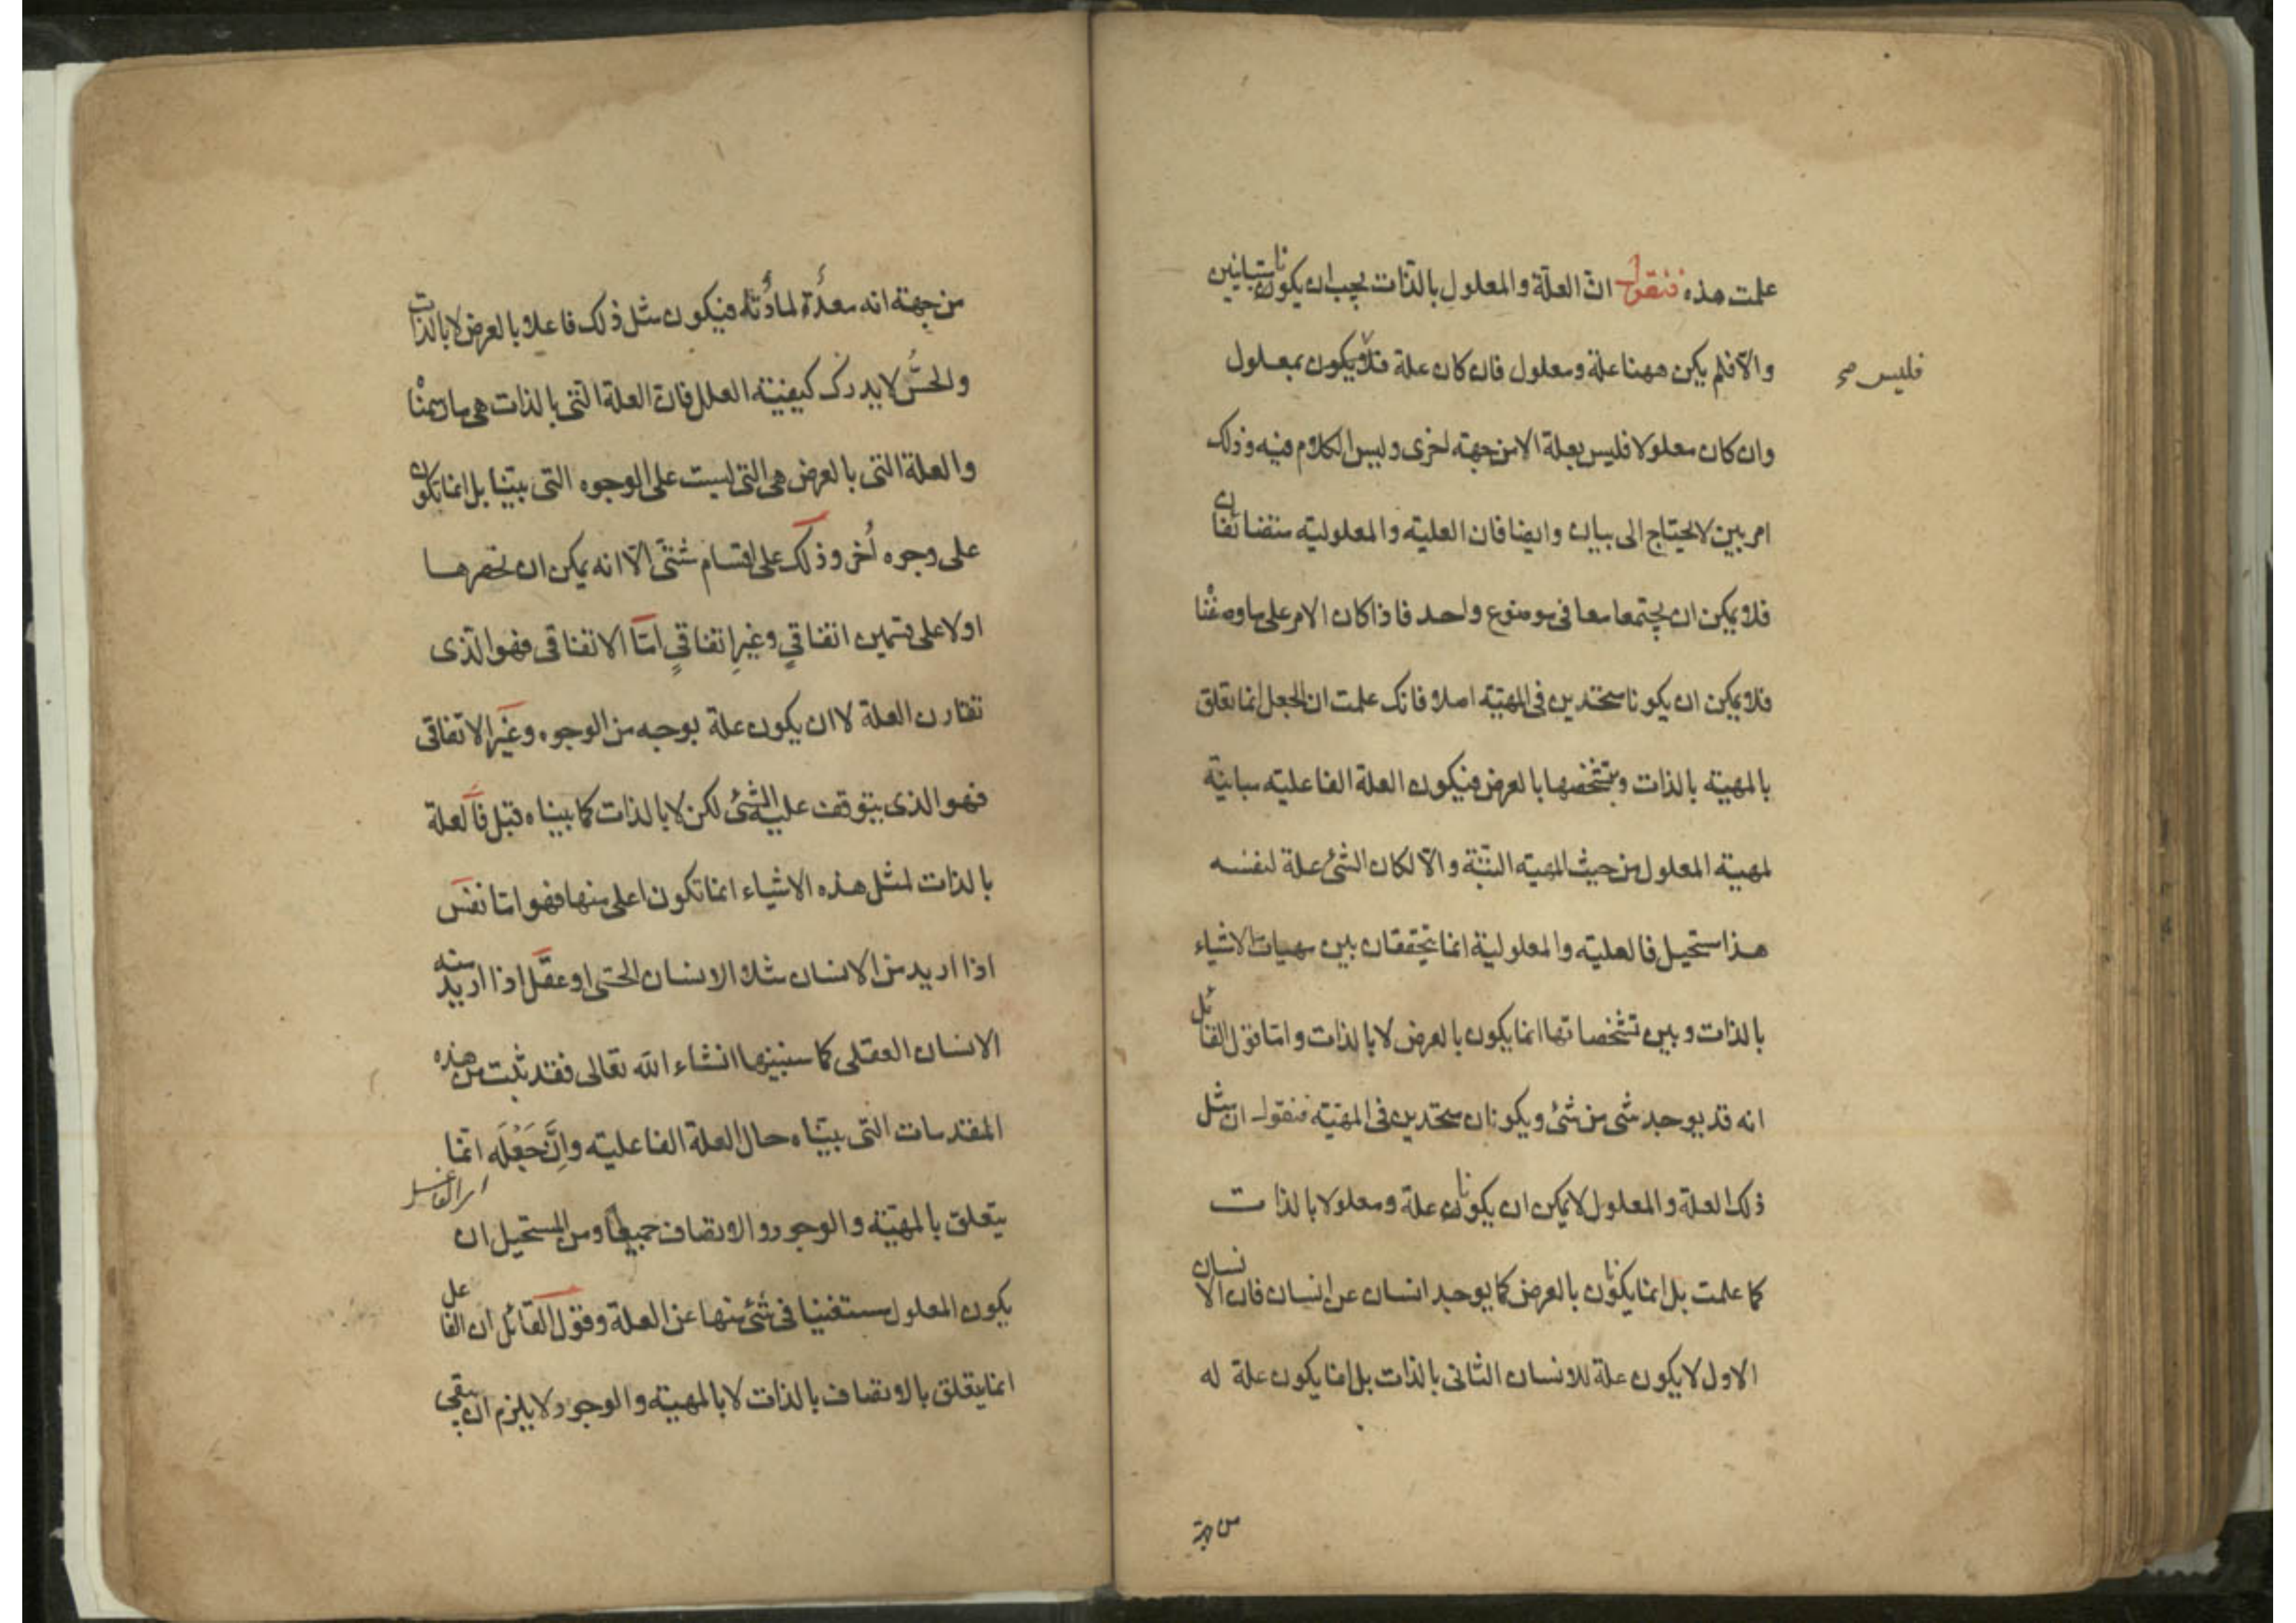 علمت هذه فنقول ان العلة والمعلول بالذات يجب ان يكونا متباينين
والّا فلم يكن ههنا علة ومعلول فان كان علة فلا يكون بمعلول
فليس صح
وان كان معلولا فليس بعلة الا من جهته اخرى وليس الكلام فيه وذلك
امر بين لا يحتاج الى بيان وايضا فان العليه والمعلوليه متضائفان
فلا يمكن ان يجتمعا معا فى موضوع واحد فاذا كان الامر على ما وصفنا
فلا يمكن ان يكونا متحدين فى المهيّة اصلا فانك علمت ان الجعل انما تعلق
بالمهيّة بالذات وبتشخصها بالعرض فيكون العلة الفاعليه مباينة
لمهيّة المعلول من حيث المهيّه البتّة والّا لكان الشئ علة لنفسه
هذا مستحيل فالعليه والمعلولية انما يتحققان بين مهيات الاشياء
بالذات وبين تشخصاتها انما يكون بالعرض لا بالذات واما قول القائل
انه قد يوجد شى من شئ ويكونان متحدين فى المهيّة فنقول ان مثل
ذلك العلة والمعلول لا يمكن ان يكونا علة ومعلولا بالذات
كما علمت بل انما يكونا بالعرض كما يوجد انسان عن انسان فان الانسان
الاول لا يكون علة للانسان الثانى بالذات بل انما يكون علة له
من جهة
من جهته انه معدّة لمادّته فيكون مثل ذلك فاعلا بالعرض لا بالذات
والحسّ لا يدرك كيفيّة العلل فان العلة التى بالذات هى ما رسمنا
والعلة التى بالعرض هى التى ليست على الوجوه التى بيّنا بل انما يكون
على وجوه أخر وذلك على اقسام شتّى الّا انه يمكن ان نحصرها
اولا على قسمين اتفاقيٍ وغيرِ اتفاقيٍ امّا الاتفاقى فهو الّذى
تقارن العلة لا ان يكون علة بوجه من الوجوه وغير الاتفاقى
فهو الذى يتوقف عليه الشئ لكن لا بالذات كما بيناه قبل فالعلة
بالذات لمثل هذه الاشياء انما تكون اعلى منها فهو اما نفس
اذا اريد من الانسان مثلا الانسان الحسى او عقل اذا اريد منه
الانسان العقلى كما سنبينها انشاء الله تعالى فقد ثبت من هذه
المقدمات التى بيّناه حال العلة الفاعليه وانَّ جَعْلَه انما
يتعلق بالمهيّة والوجود والاتصاف جميعًا ومن المستحيل ان
يكون المعلول مستغنيا فى شئ منها عن العلة وقول القائل ان الفاعل
انما يتعلق بالاتصاف بالذات لا بالمهيّة والوجود ولا يلزم ان يبقى